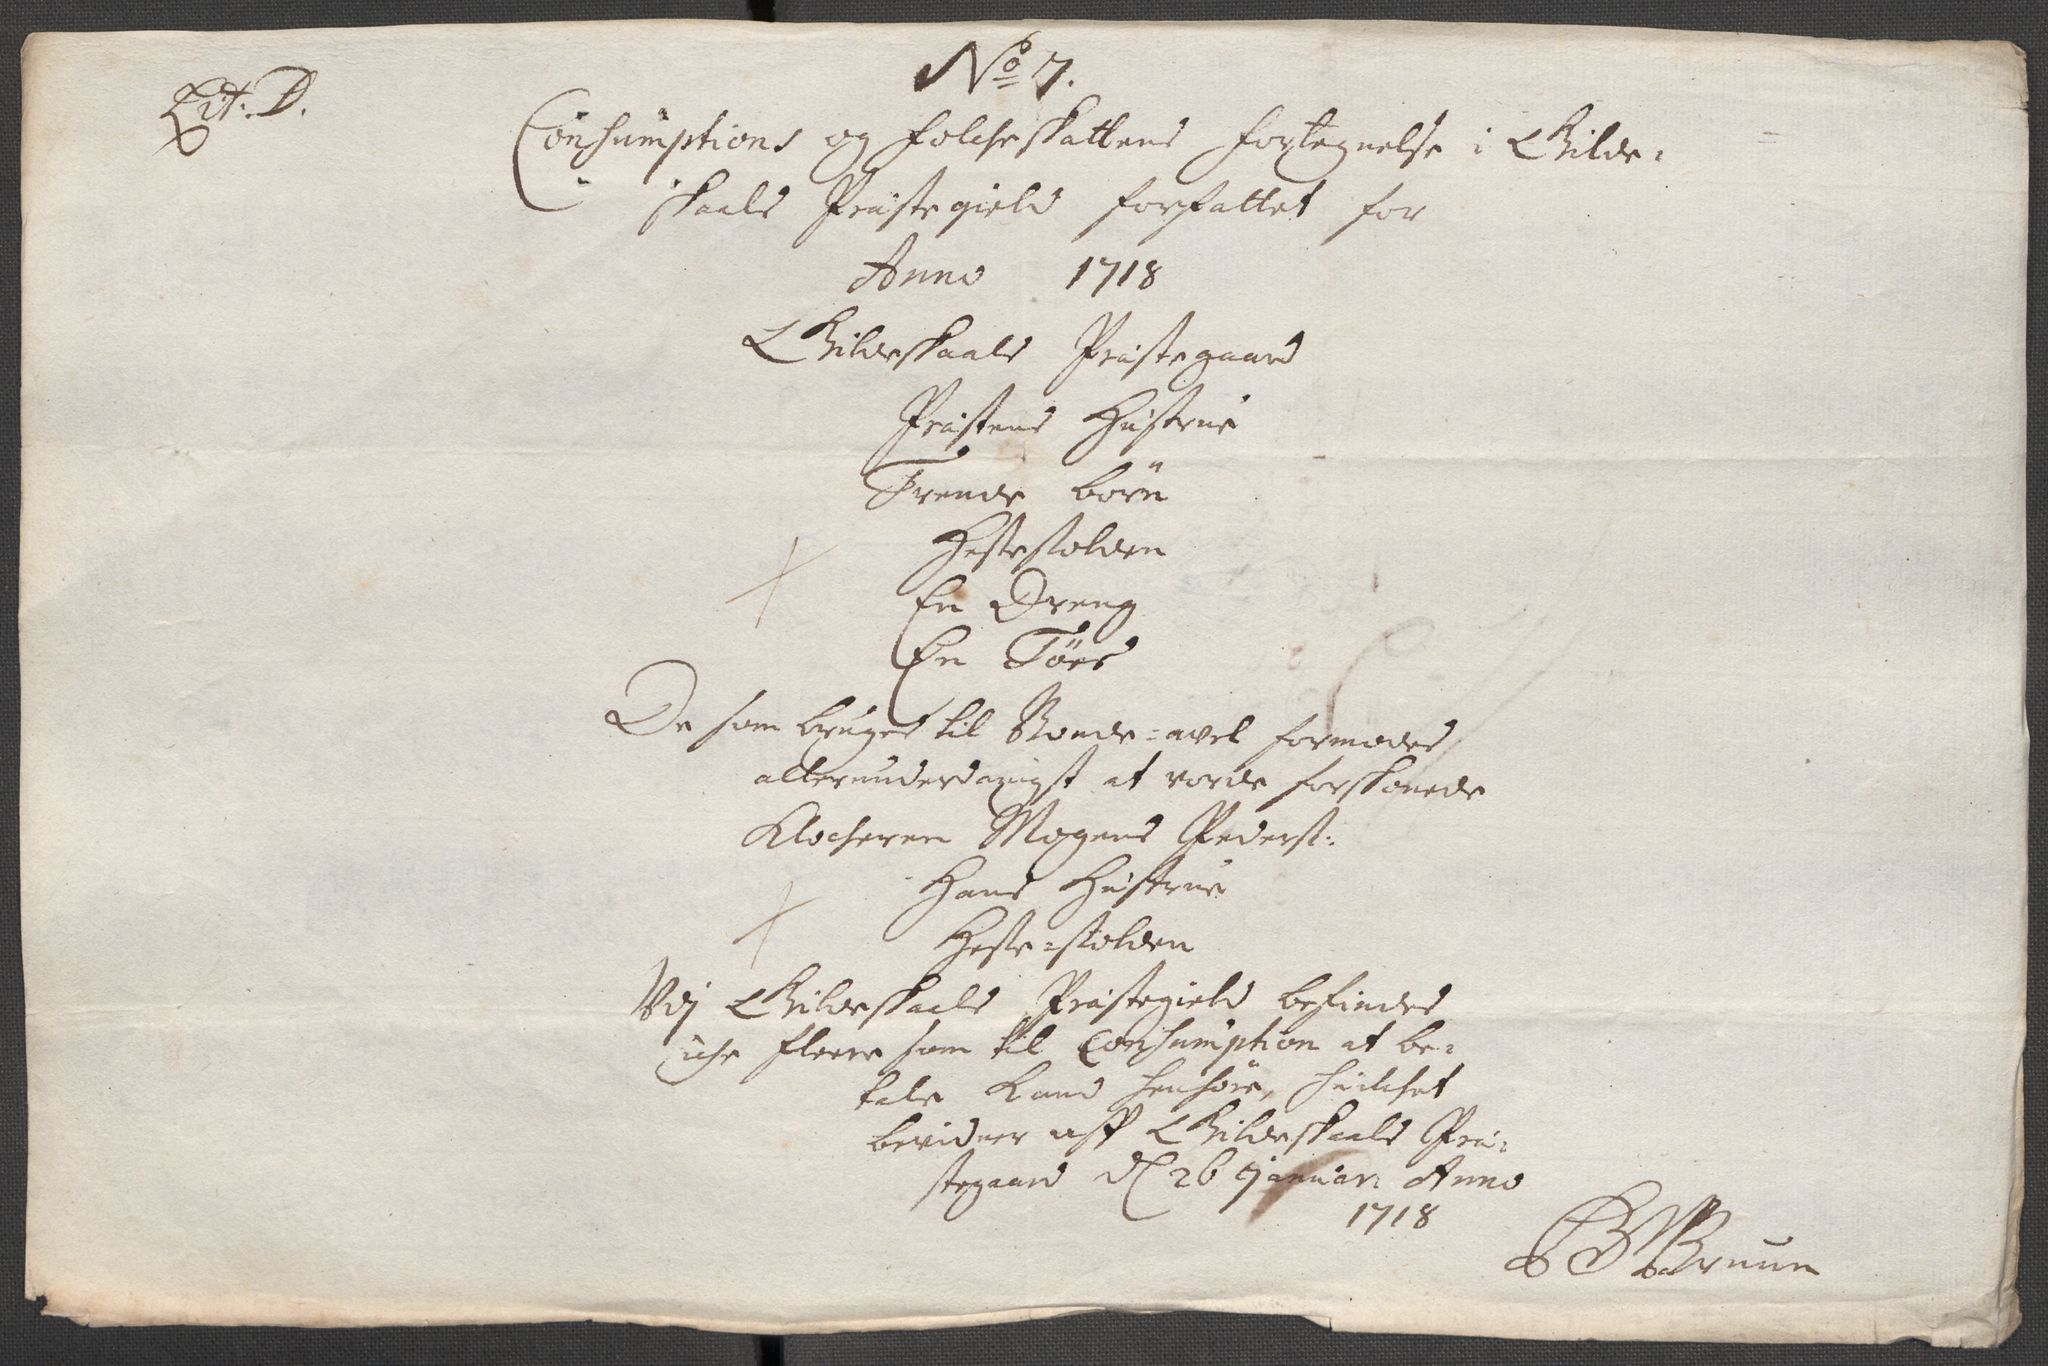 Lit: D.
No 7.
Consumptions og folcheskattens fortegnelse i Gilde=
skaals Præstegield forfattet for
Anno 1718
Gildeskaals Præstegaard
Præstens Hustrue
Trende börn
Hesteskolden
En Dreng
En Töes
De som bruges til Bonde=avel formodes
allerunderdanigst at vorde forskonede
Klocheren Mogens Pederst:
Hans Hustrue
Heste=skolden
Udj Gildeskaals Præstegield befindes
iche fleere som til Consumption at be=
tale kand henhöre, huilchet
bevidner aff Gildeskaals Præ=
stegaard d 26 Januari Anno
1718
Bruun